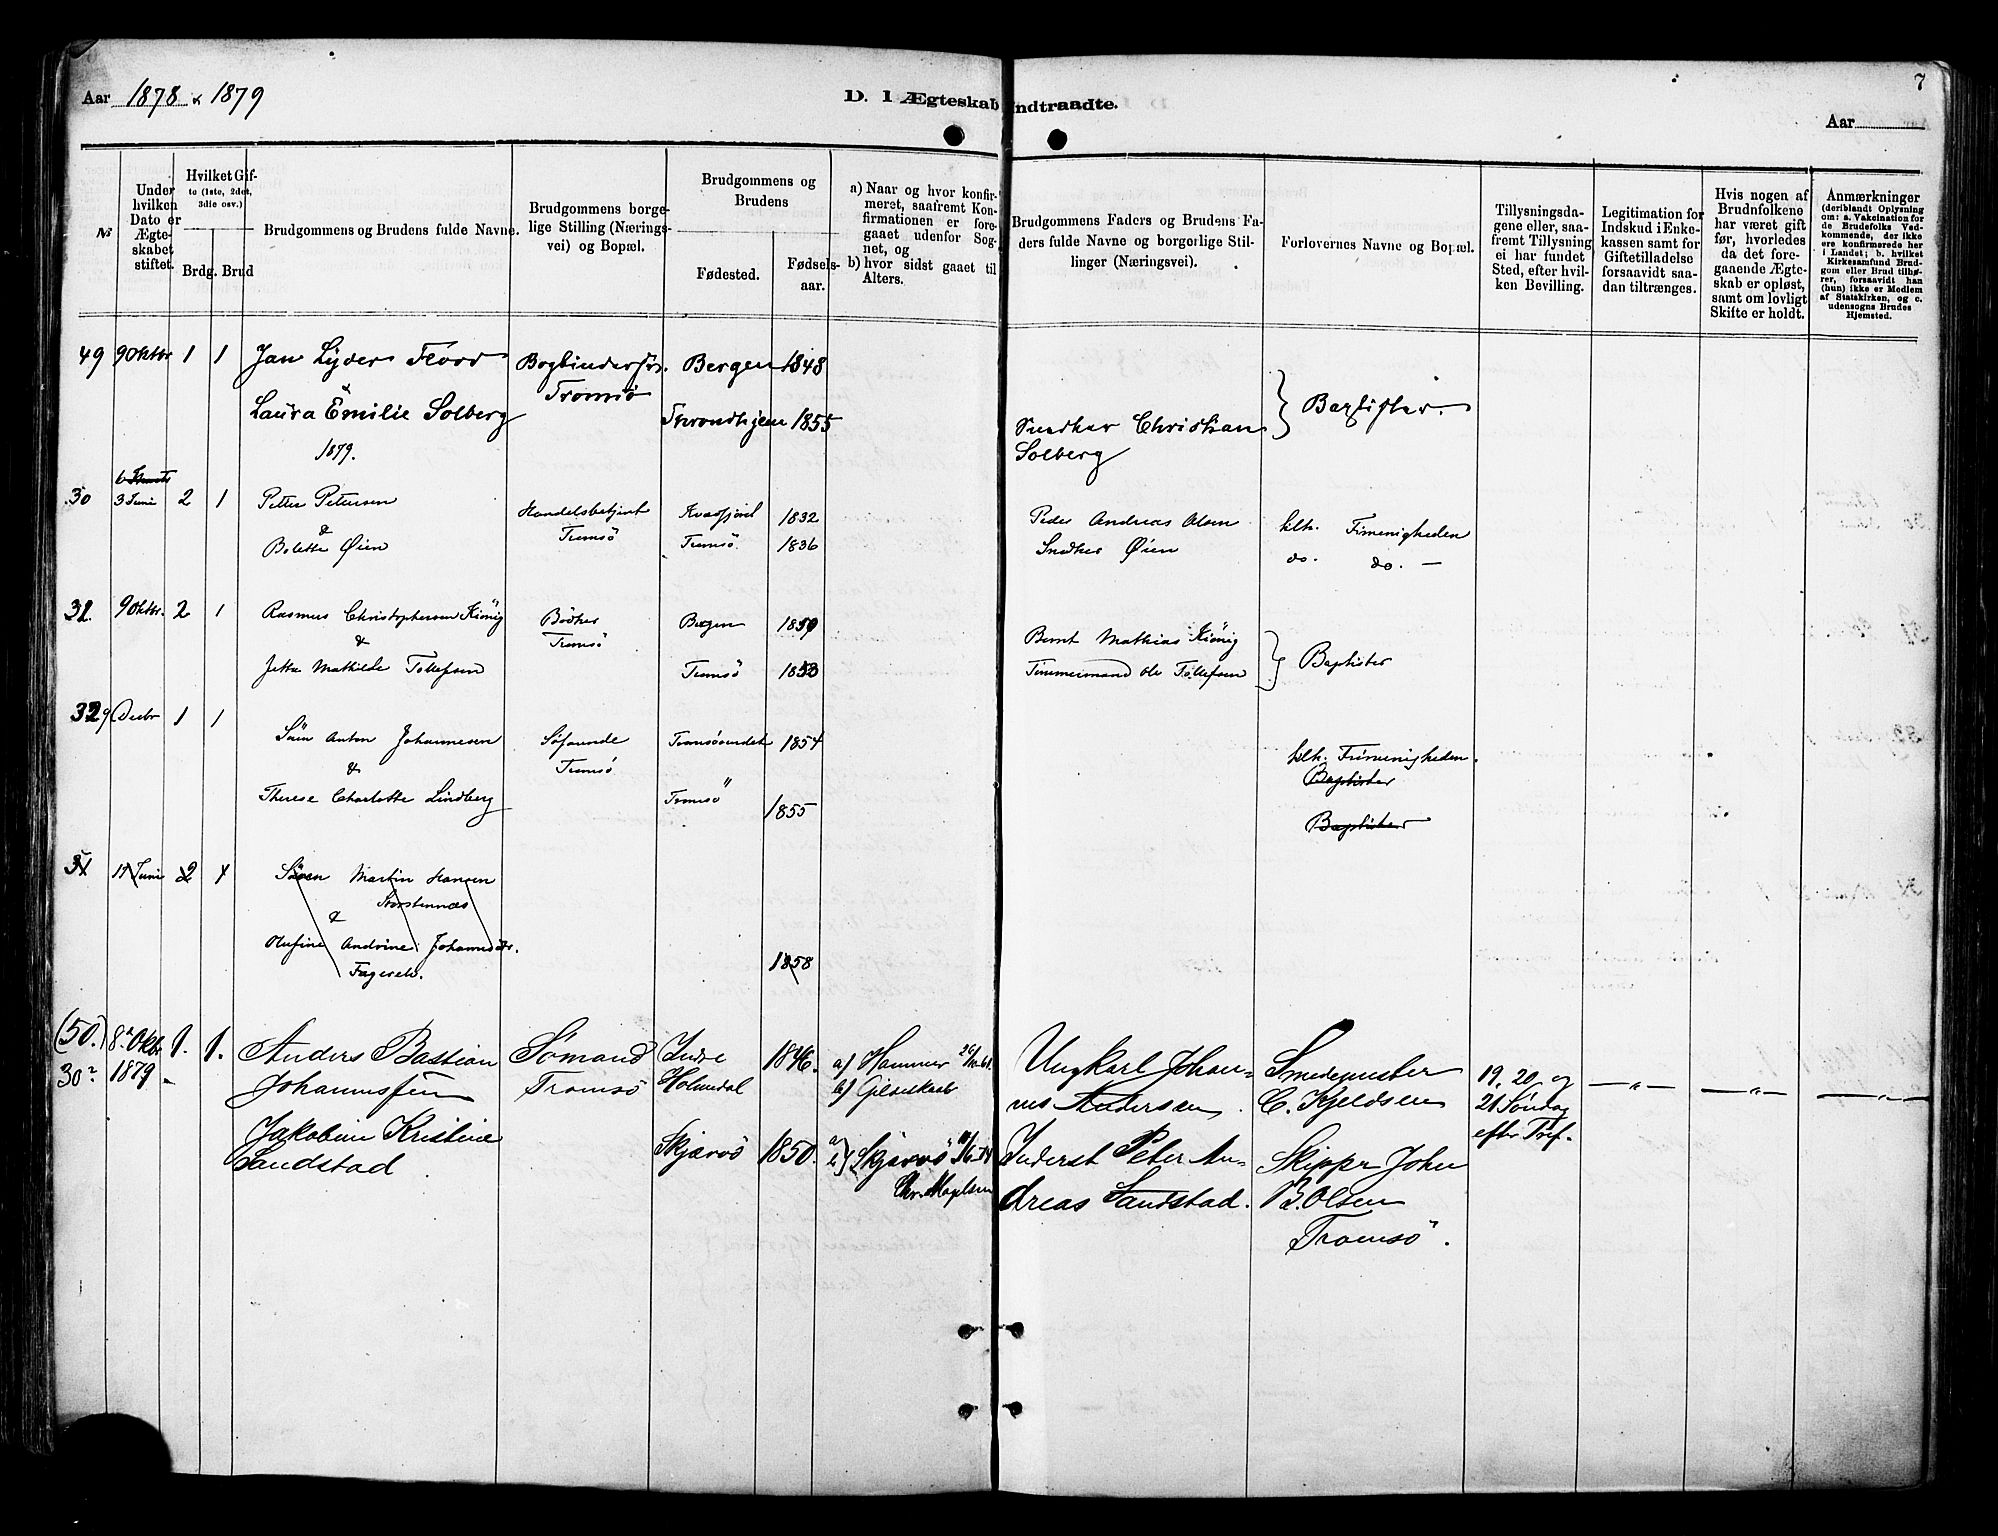 Aar 1878 & 1879
D. I Ægteskab Indtraadte.
7
Aar
№
Under hvilken Dato er Ægteskabet stiftet.
Hvilket Gifte (1ste, 2det, 3die osv.)
Brdg. Brud
Brudgommens og Brudens fulde Navne.
Brudgommens borgelige Stilling (Næringsvei) og Bopæl.
Brudgommens og Brudens
Fødested.
Fødselsaar.
a) Naar og hvor konfirmeret, saafremt Konfirmationen er foregaaet udenfor Sognet, og
b) hvor sidst gaaet til Alters.
Brudgommens Faders og Brudens Faders fulde Navne og borgerlige Stillinger (Næringsvei).
Forlovernes Navne og Bopæl.
Tillysningsdagene eller, saafremt Tillysning ei har fundet Sted, efter hvilken Bevilling.
Legitimation for Indskud i Enkekassen samt for Giftetilladelse forsaavidt saadan tiltrænges.
Hvis nogen af Brudnfolkene har været gift før, hvorledes da det foregaaende Ægteskab er opløst, samt om lovligt Skifte er holdt.
Anmærkninger
(deriblandt Oplysning om: a. Vakcination for de Brudefolks Vedkommende, der ikke ere konfirmerede her i Landet; b. hvilket Kirkesamfund Brudgom eller Brud tilhører, forsaavidt han (hun) ikke er Medlem af Statskirken, og c. udensogns Brudes Hjemsted.
49 9 Oktbr 1 1 Jan Lyder Floor Bogbindersv. Bergen 1848
& Tromsö
Laura Emilie Solberg Throndhjem 1855 Snedker Christian Baptister.
Solberg
1879.
30 3 Juni 2 1 Petter Petersen Handelsbetjent Kvæfjord 1832 Peder Andreas Olsen klh. Frimenigheden
& Tromsö
Bolette Øien Tromsö. 1836 Snedker Øien do. do. —
31. 9 Oktbr. 2 1 Rasmus Christophersen König Bödker Bergen 1859 Bernt Mathias König
& Tromsö Baptister
Jetta Mathilde Tollefsen Tromsö 1853 Timmermand Ole Tollefsen
32 9 Decbr 1 1 Sören Anton Johannesen Söfarende Tromsösundet 1854 klh. Frimenigheden.
& Tromsö Baptister
Therese Charlotte Lindberg Tromsö 1855 Baptister
31 17 Juni 2 1 Sören Martin Hansen
Storstennæs
&
Olufine Andrine Johannesdtr.
Fagerelv. 1858
(50.) 8de Oktbr 1. 1. Anders Bastian Sømand Indre 1846. a) Hammer Ungkarl Johan- Smedemester 19, 20 og — „ — — „ — — „ —
30 1879 Johannessen Tromsø Holmedal b) Gildeskaal nes Andersen. C. Kjeldsen 21 Søndag
Jakobine Kristine Skjærvö 1850. Skjærvö Inderst Peter An- Skipper John efter Tref.
Sandstad dreas Sandstad. B. Olsen
Tromsö.